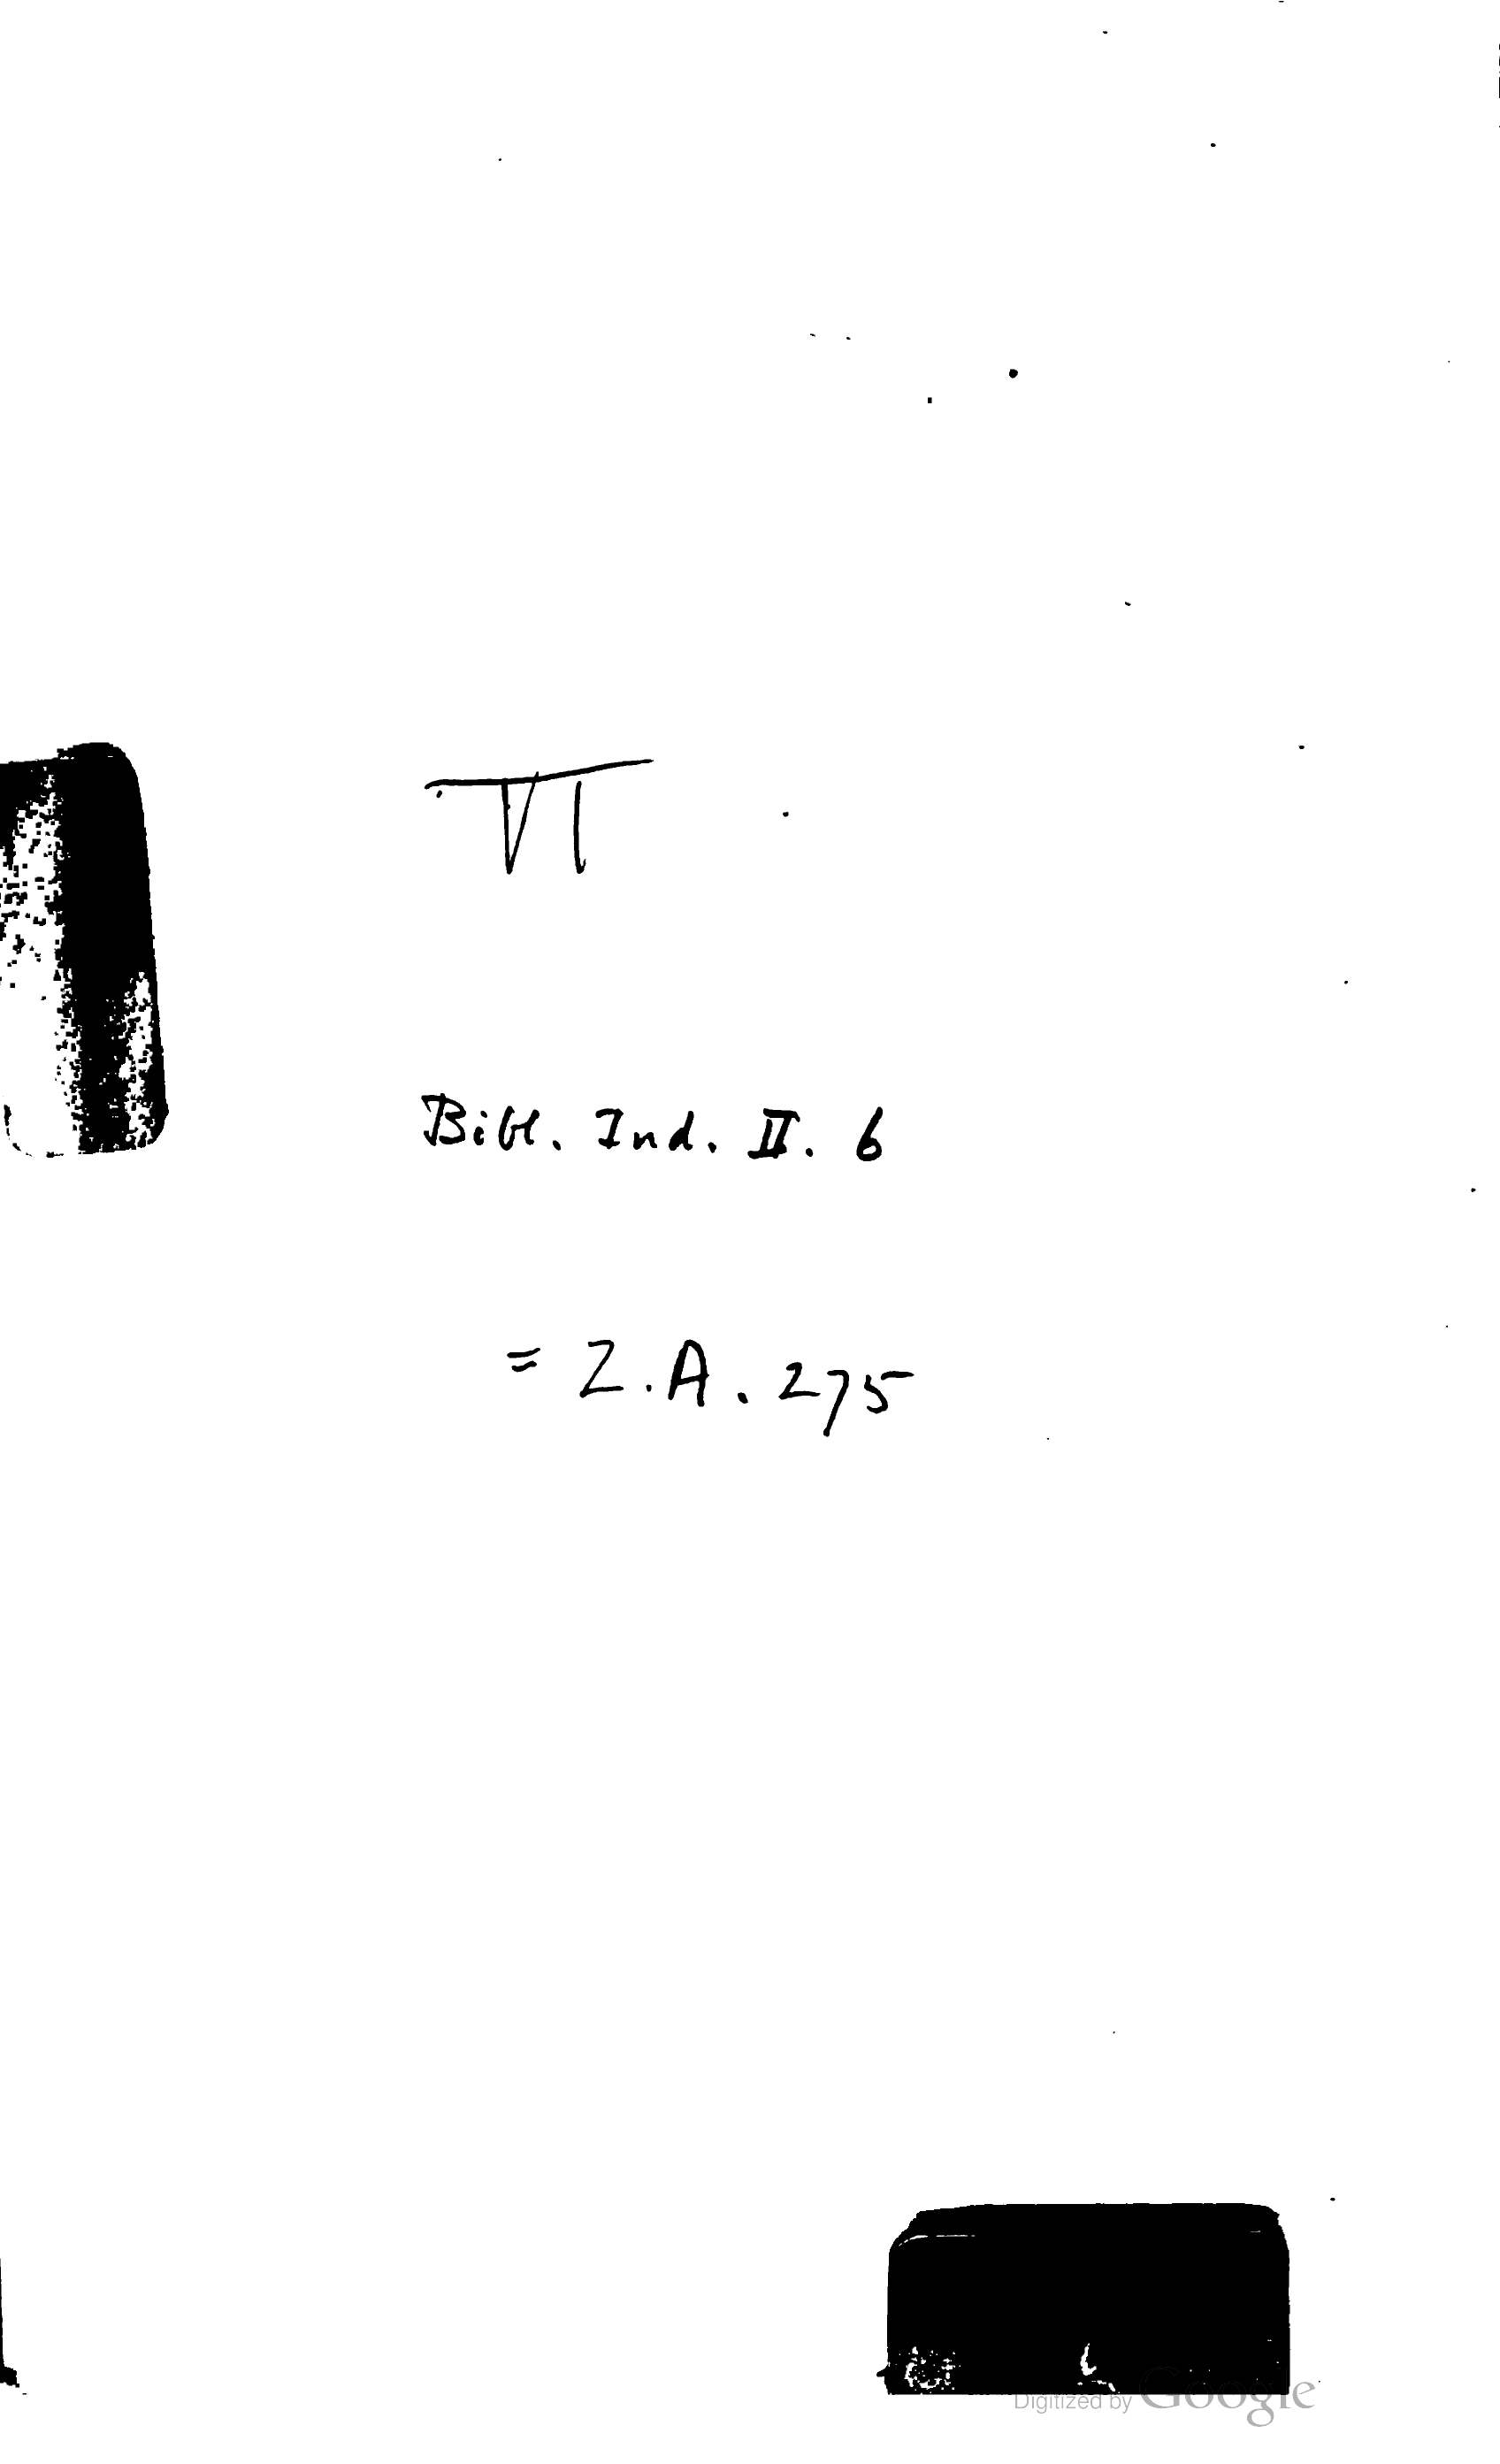 VI
Bibl. Ind. II. 6
= Z.A. 275
Digitized by Google